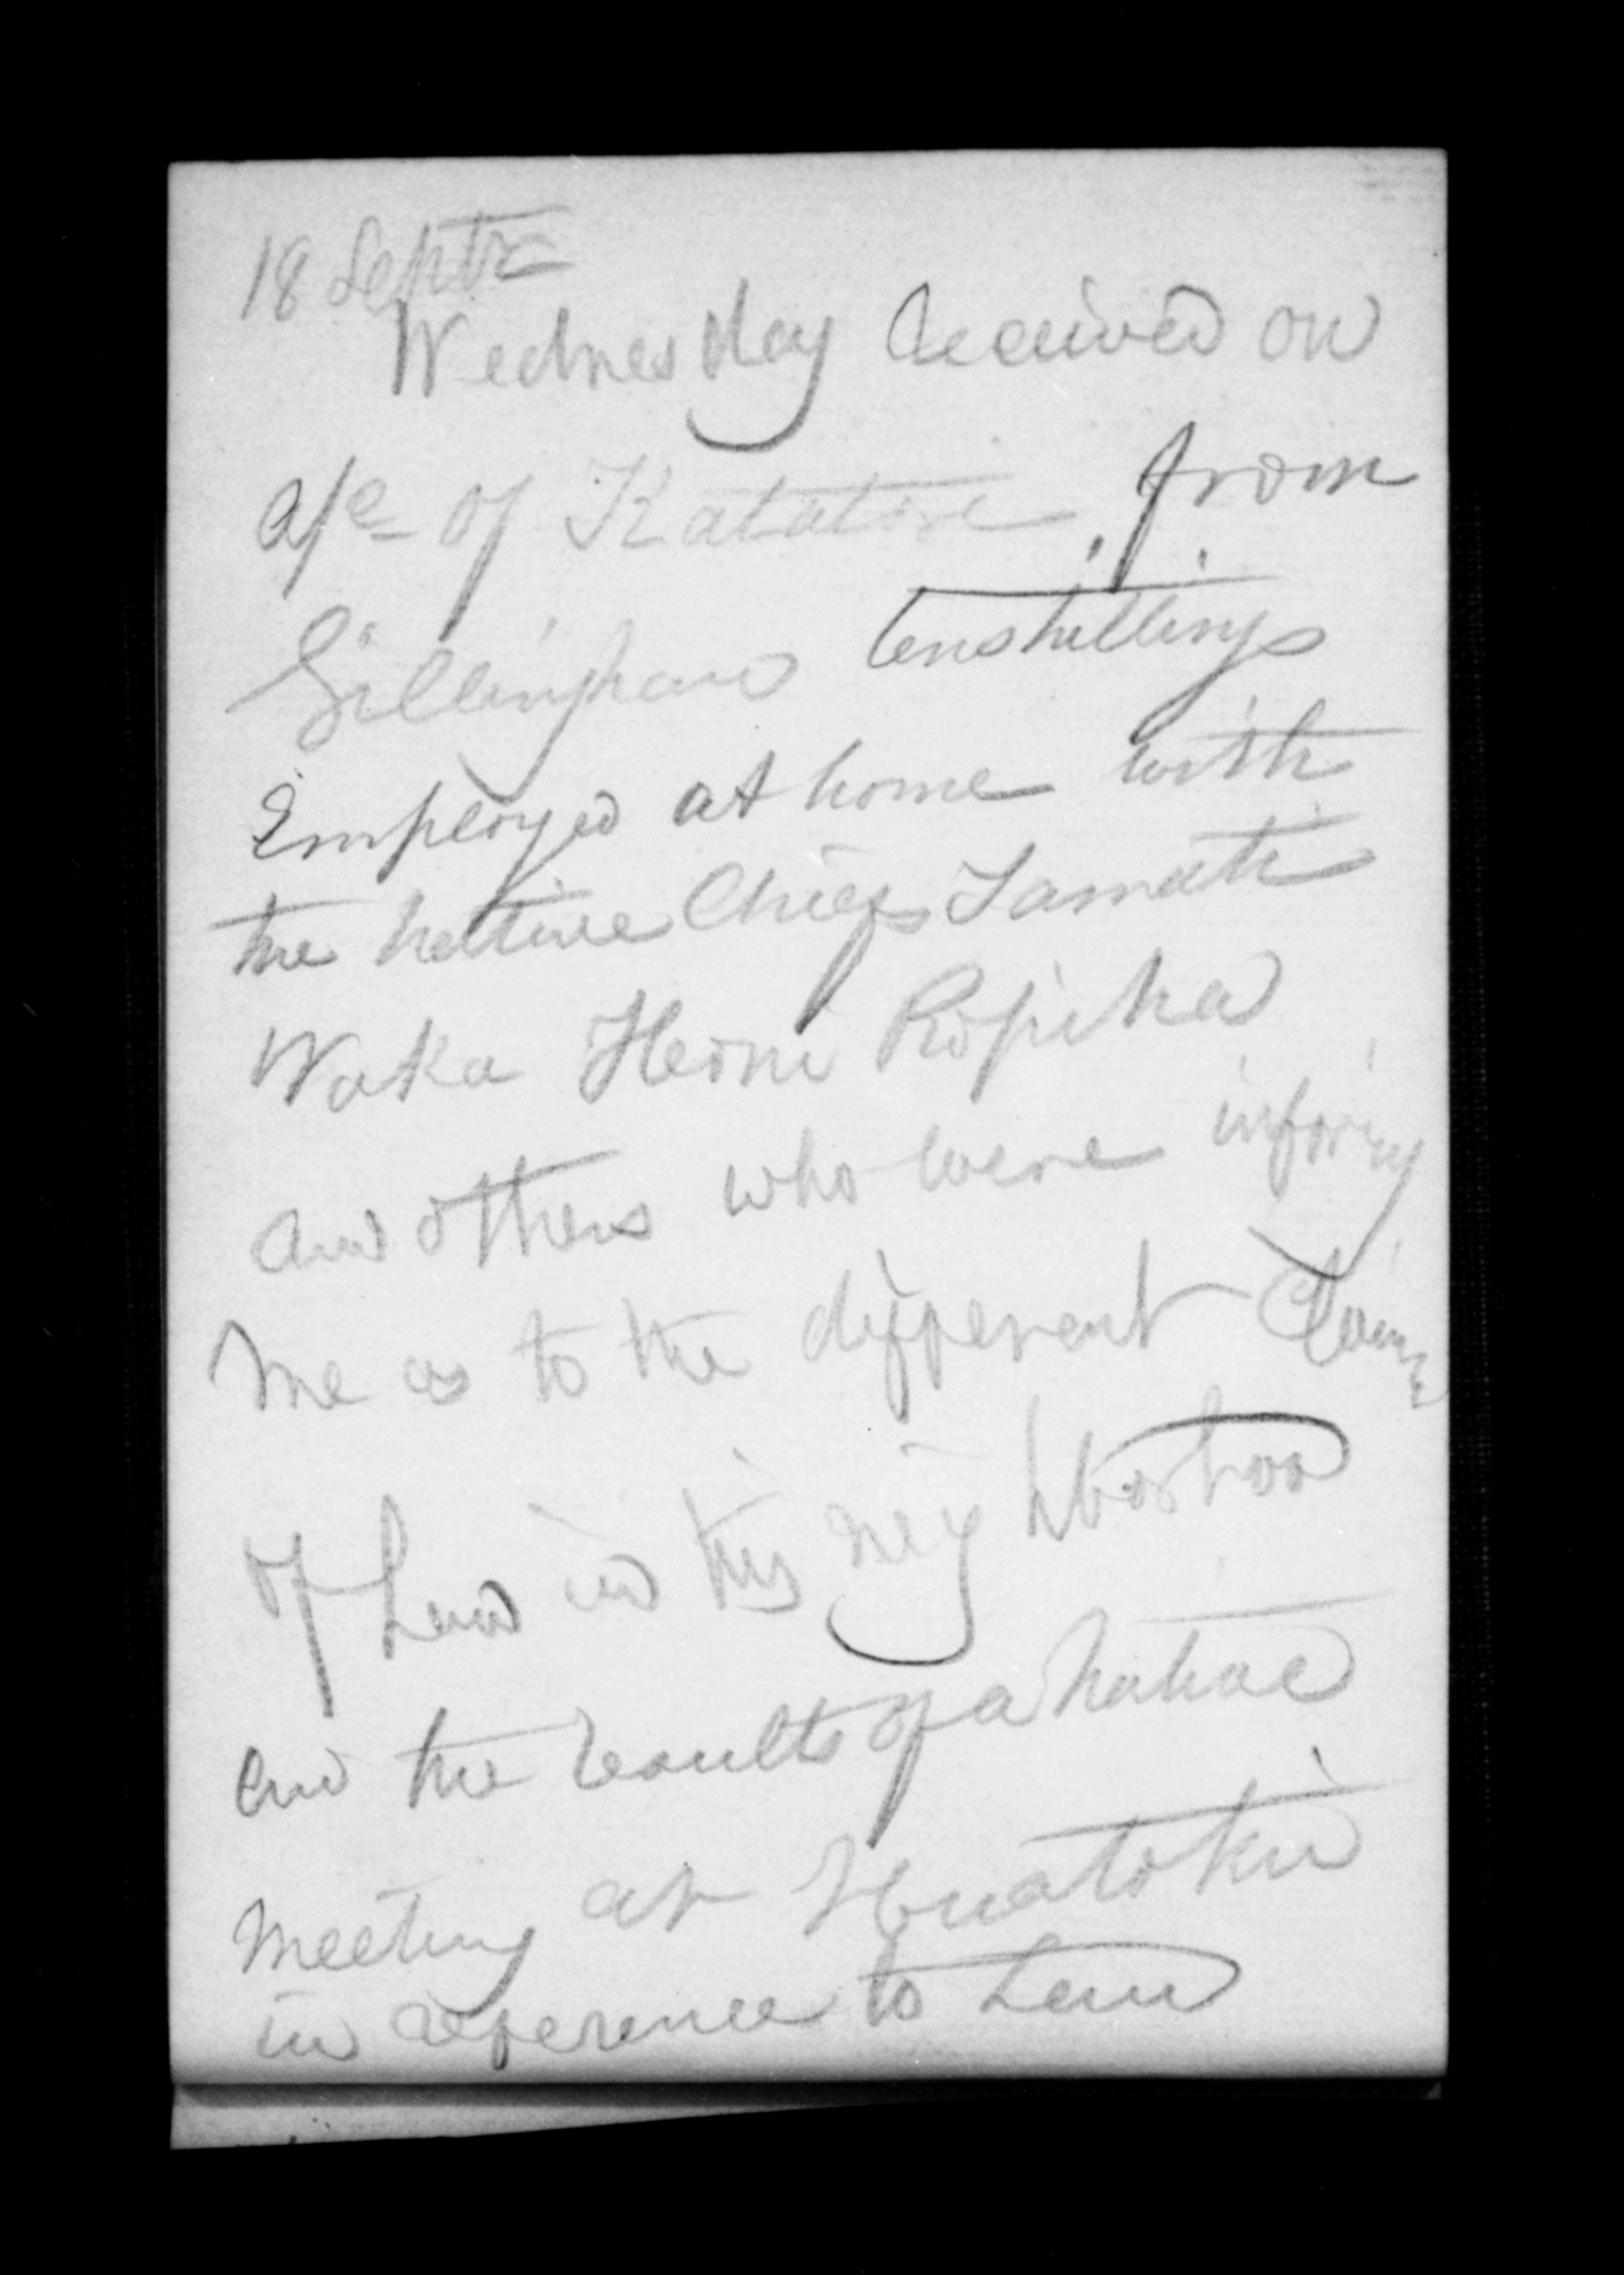 18 Septr
Wednesday Received on
a/c of Katatore from
Gillingham tenshillings
Employed at home with
the native Chiefs Tamati
Waka Heoni Ropiha
and others who were informg
me as to the different Claims
of Land in this neighborhood
and the results of a native
meeting at Huatoki
in reference to Land